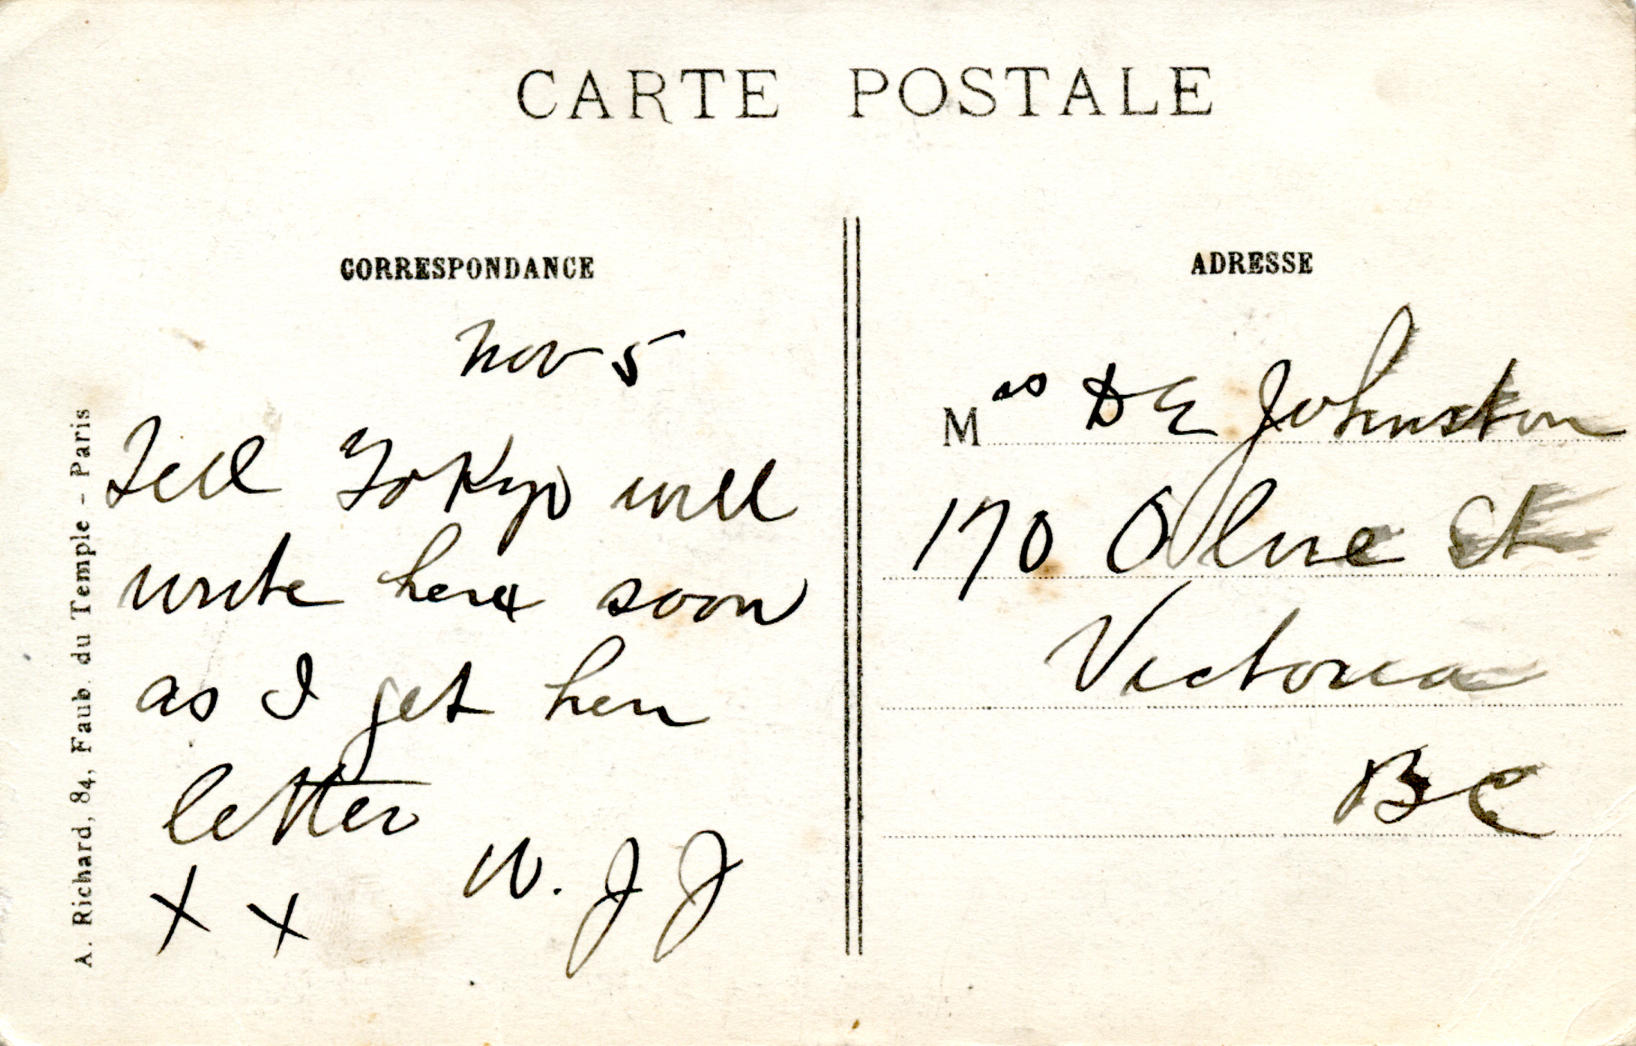 CARTE POSTALE
CORRESPONDANCE
Nov 5
Tell Tokyo will
write here soon
as I get her
letter
X X
W. J J
A. Richard, 84, Faub. du Temple - Paris
ADRESSE
Mrs D E Johnston
170 Olive St
Victoria
B C